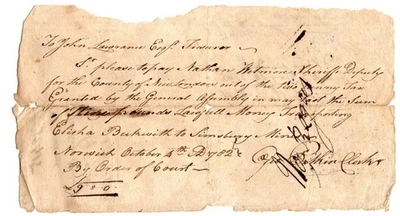 To John Lawrance Esqr. Tresurer
Sr. please to pay Nathan Witmore Sheriffs Deputy
for the County of New London out of the Two penny Tax
Granted by the General Asembly in may the Sum
of pounds Lawfull Money Transporting
Elisha Beckwith to Simsbury
Norwich October 4th AD 1782
By Order of Court
£9 = 0
Clerk